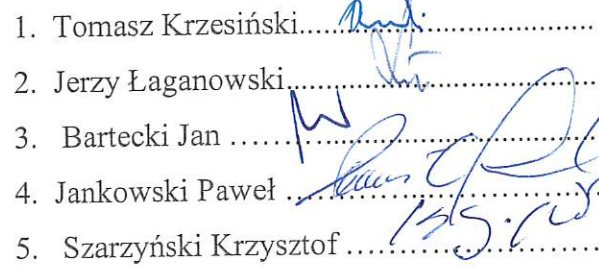 1. Tomasz Krzesiński..............................
2. Jerzy Łaganowski..............................
3. Bartecki Jan ..............................
4. Jankowski Paweł ..............................
5. Szarzyński Krzysztof ..............................